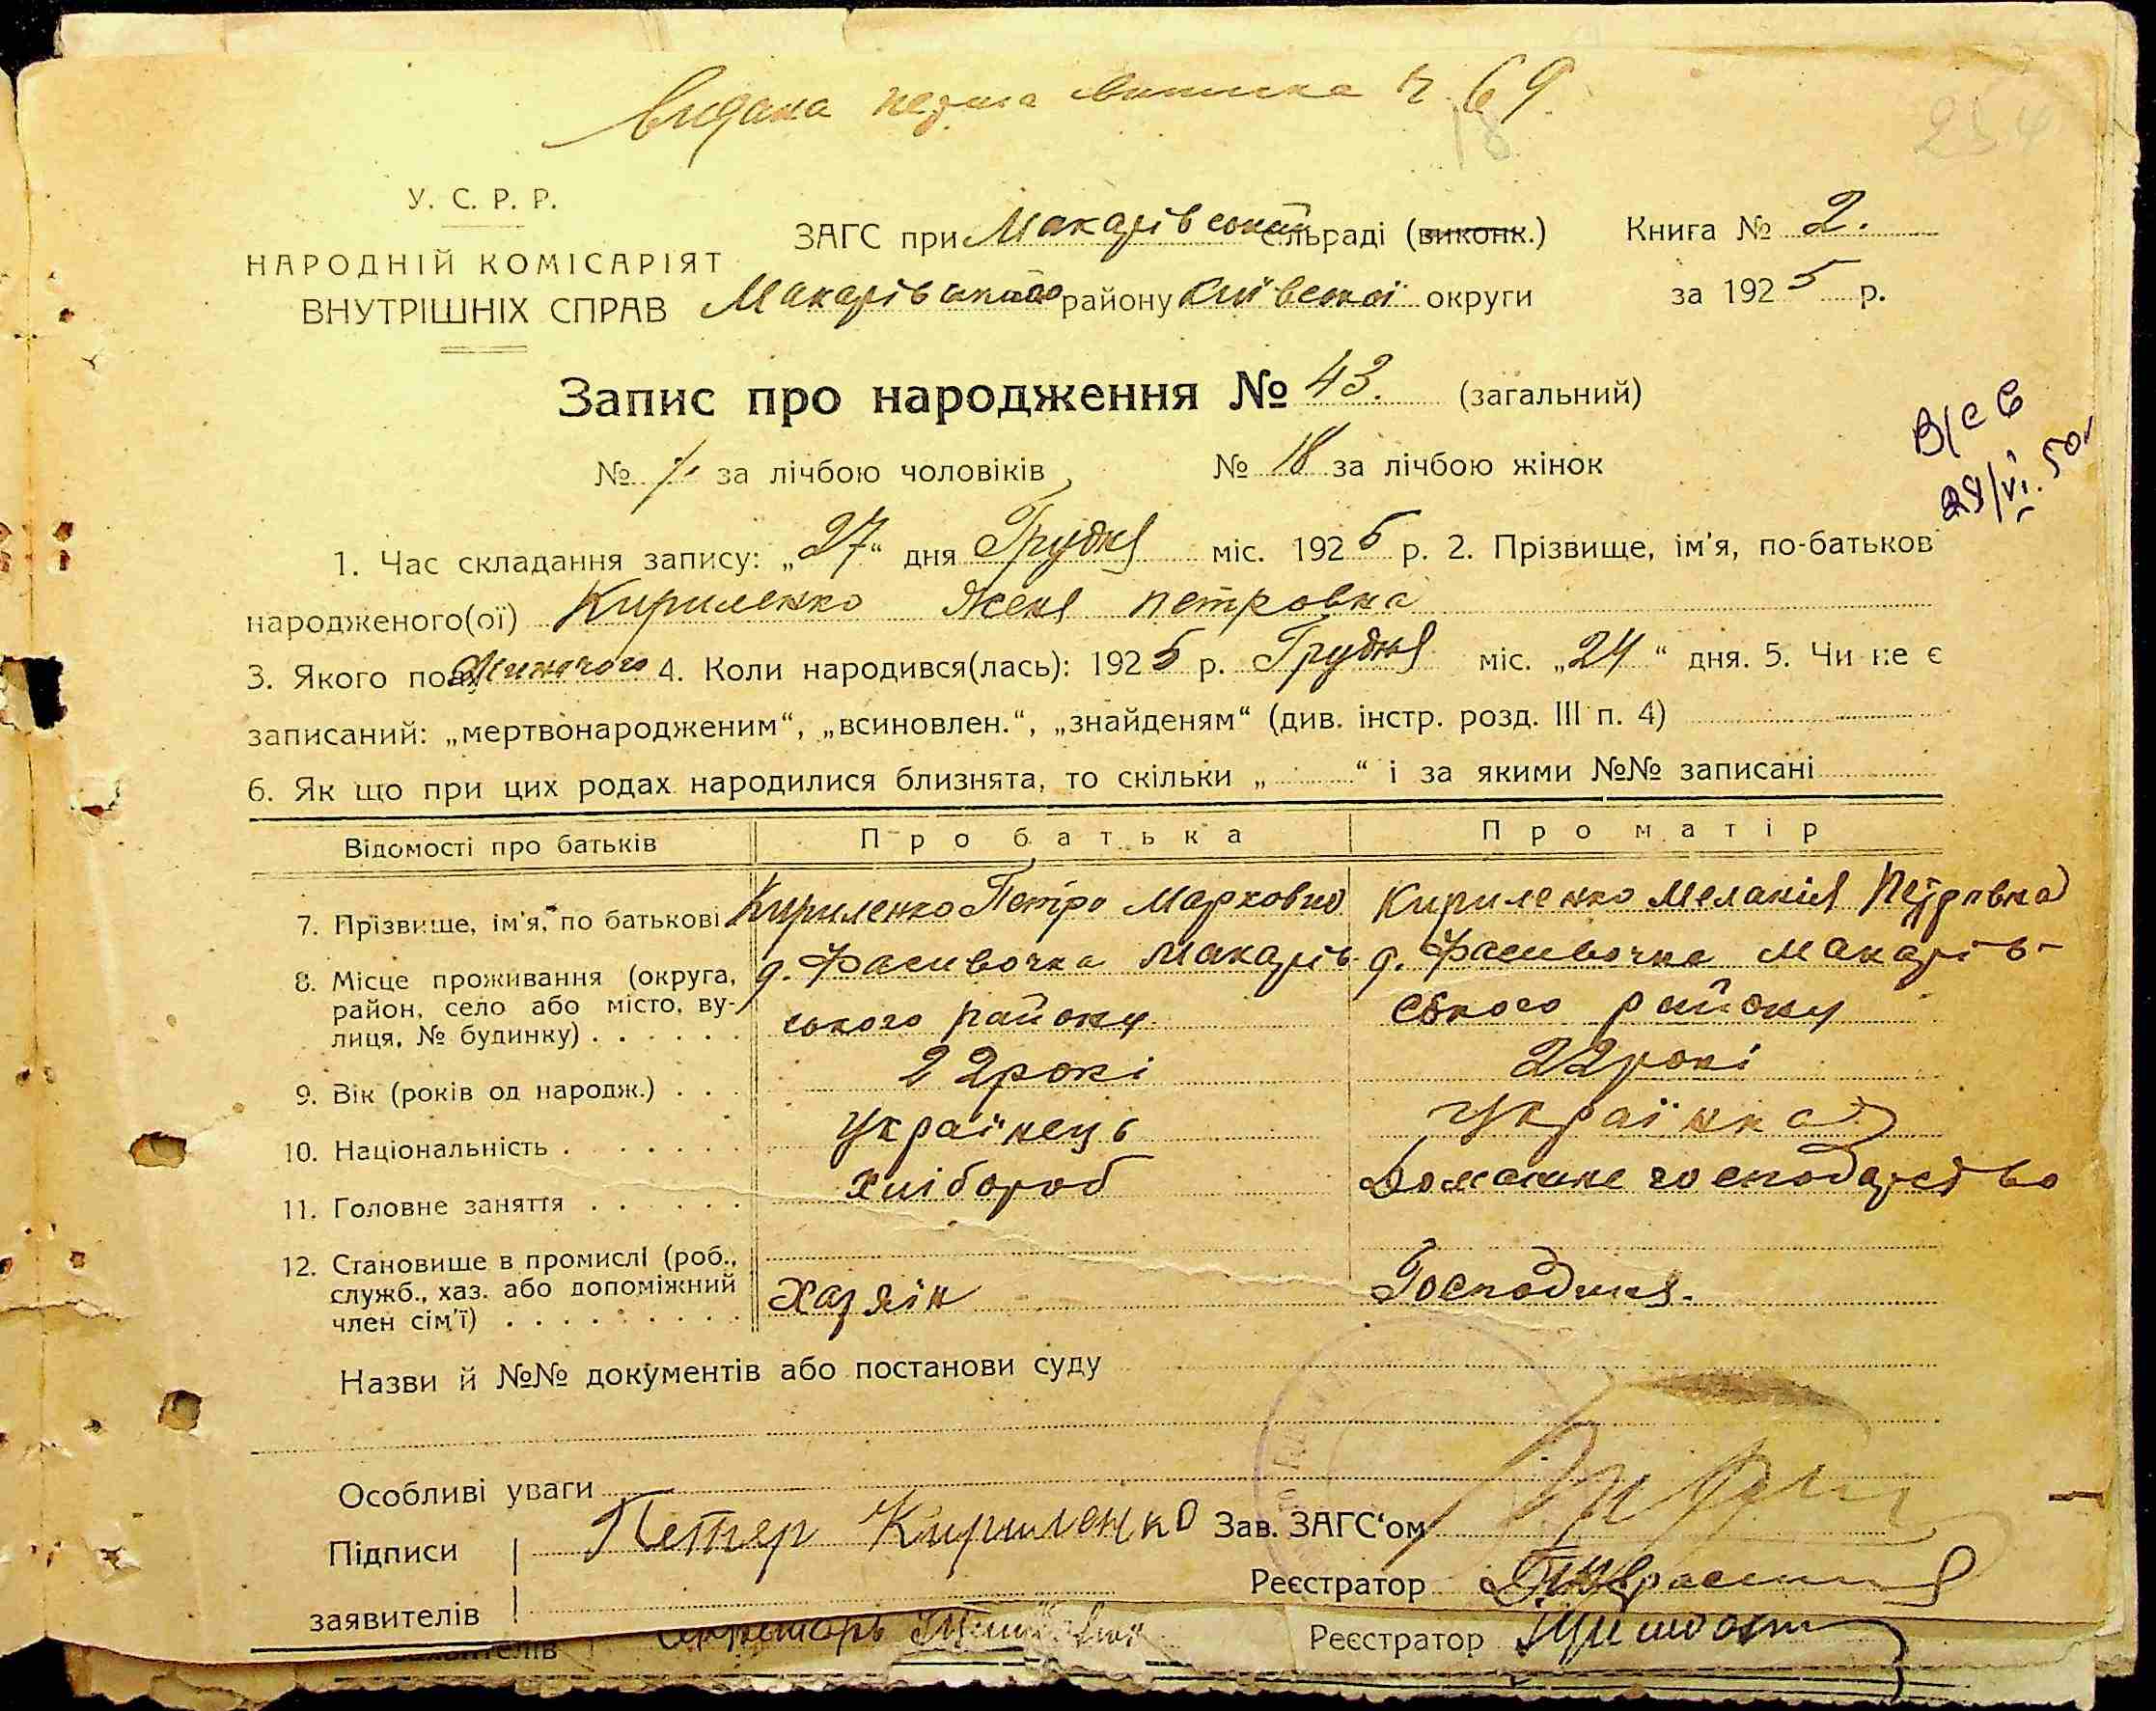 Видана перша виписка ч. 69.
18
254
У. С. Р. Р.
НАРОДНІЙ КОМІСАРІЯТ
ВНУТРІШНІХ СПРАВ
ЗАГС при Макарівській сільраді (виконк.) Книга № 2.
Макарівського району Київської округи за 1925 р.
Запис про народження № 43. (загальний)
№ за лічбою чоловіків № 18 за лічбою жінок
В/с С
28/VI. 50
1. Час складання запису: „27“ дня Грудня міс. 1925 р. 2. Прізвище, ім'я, по-батьков
народженого(ої) Кириленко Женя Петровна
3. Якого полу жиночого 4. Коли народився(лась): 1925 р. Грудня міс. „24“ дня. 5. Чи не є
записаний: „мертвонародженим“, „всиновлен.“, „знайденям“ (див. інстр. розд. III п. 4)
6. Як що при цих родах народилися близнята, то скільки „ “ і за якими №№ записані
Відомості про батьків Про батька Про матір
7. Прізвище, ім'я, по батькові Кириленко Петро Марковно Кириленко Меланія Петровна
8. Місце проживання (округа, район, село або місто, вулиця, № будинку) . . . . . . д. Фасивочка Макарівського району д. Фасивочка Макарівського району
9. Вік (років од народж.) . . . 22 рокі 22 рокі
10. Національність . . . . . . . Українець Українка
11. Головне заняття . . . . . . Хлібороб Домашне господарство
12. Становище в промислі (роб., служб., хаз. або допоміжний член сім'ї) . . . . . . . . . Хазяїн Господиня.
Назви й №№ документів або постанови суду
Особливі уваги
Підписи Петер Кириленко Зав. ЗАГС‘ом
Реєстратор
заявителів
Реєстратор